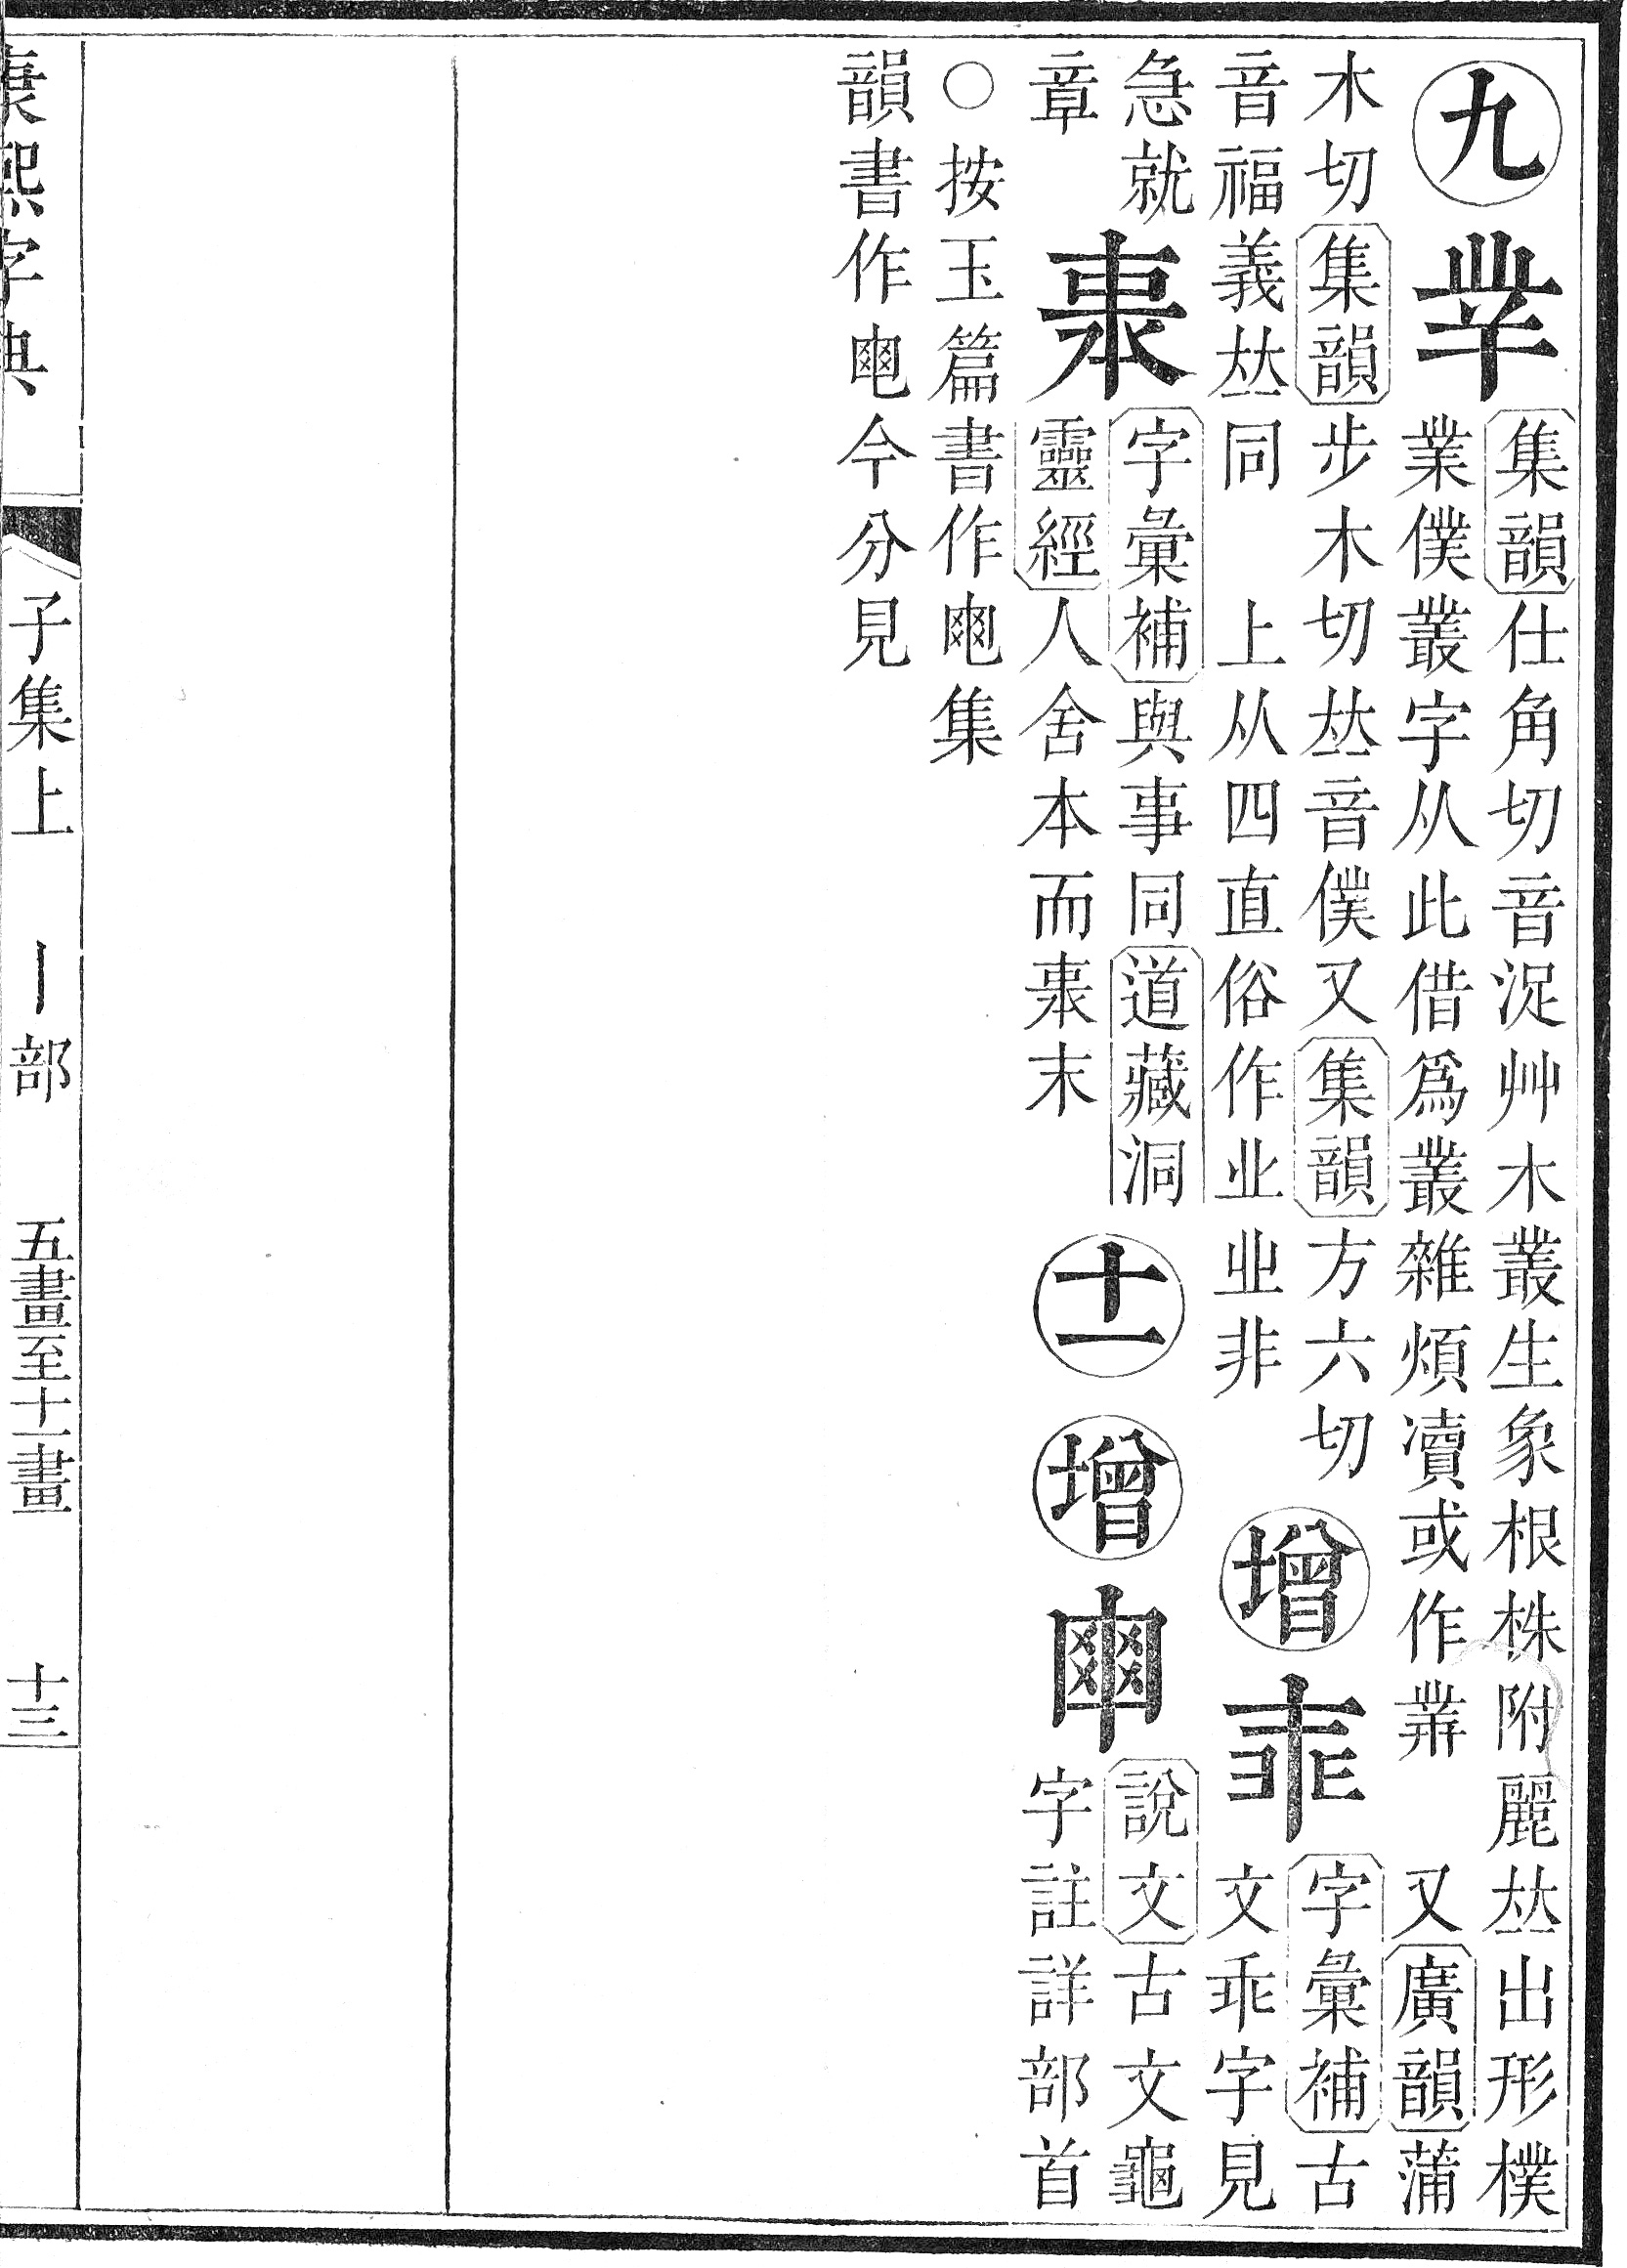 九
丵
集韻仕角切音浞艸木叢生象根株附麗𠀤出形樸
業僕叢字从此借爲叢雜煩瀆或作 又廣韻蒲
木切集韻步木切𠀤音僕又集韻方六切
音福義𠀤同 上从四直俗作业业非
增
字彙補古
文乖字見
急就
章
字彙補與事同道藏洞
靈經人舍本而 末
十一
增
說文古文龜
字註詳部首
○按玉篇書作 集
韻書作 今分見
康熙字典 子集上 丨部 五畫至十一畫 十三